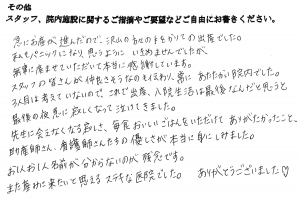 その他
スタッフ、院内施設に関するご指摘やご要望などご自由にお書きください。
急にお産が進んだので、沢山の方の手をかりての出産でした。
私もパニックになり思うように いきめませんでしたが、
無事に産ませていただいて本当に感謝しています。
スタッフの皆さんが仲良さそうなのもイイネ!! 常にあたたかい院内でした。
3人目は考えていないので、これで出産、入院生活は最後なんだと思うと
最後の夜 急に寂しくなって泣けてきました。
先生に会えなくなる寂しさ、毎食おいしいごはんをいただけてありがたかったこと、
助産師さん、看護師さんたちの優しさが本当に身にしみました。
お1人お1人名前が分からないのが残念です。
また産みに来たいと思える ステキな医院でした。 ありがとうございました♡